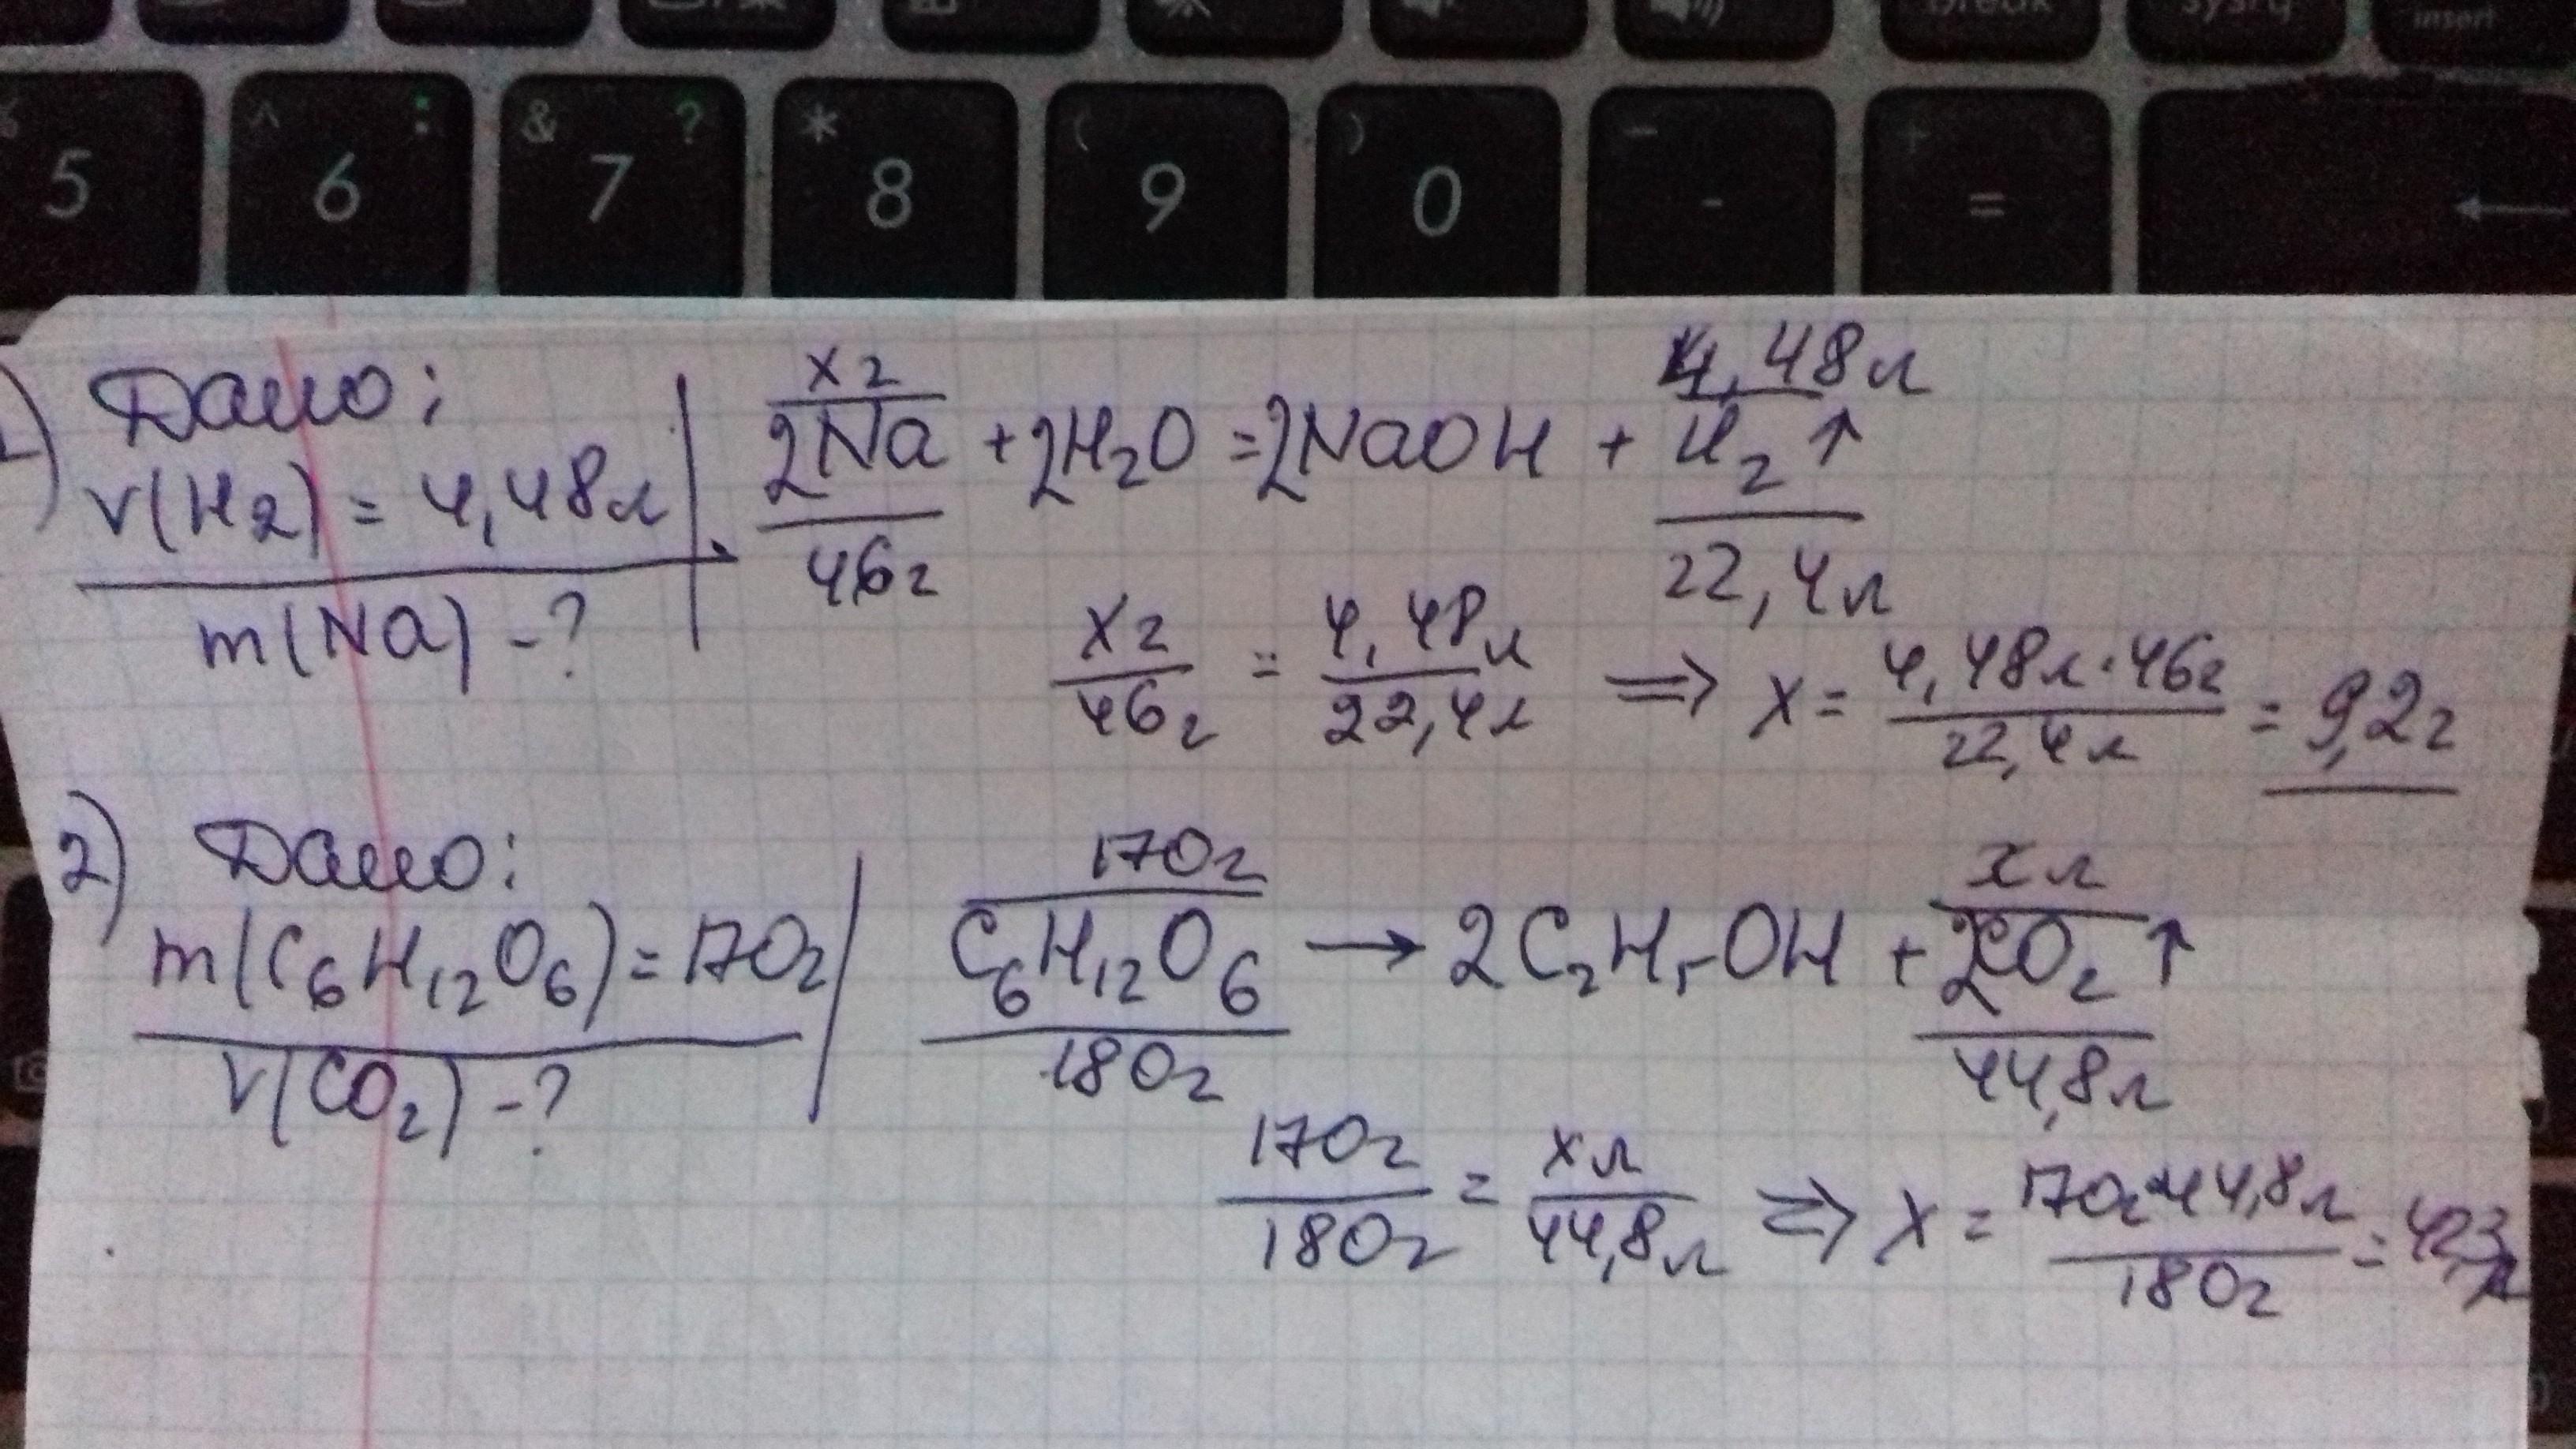 Break
sysrq
insert
%
5
^ :
6
& ?
7
*
8
(
9
)
0
-
+
=
←
1) Дано:
V(H₂) = 4,48л
m(Na) - ?
xг 4,48л
2Na + 2H₂O = 2NaOH + H₂↑
46г 22,4л
xг/46г = 4,48л/22,4л ⇒ x = 4,48л·46г/22,4л = 9,2г
2) Дано:
m(C₆H₁₂O₆) = 170г
V(CO₂) - ?
170г xл
C₆H₁₂O₆ → 2C₂H₅OH + 2CO₂↑
180г 44,8л
170г/180г = xл/44,8л ⇒ x = 170г·44,8л/180г = 42,3л